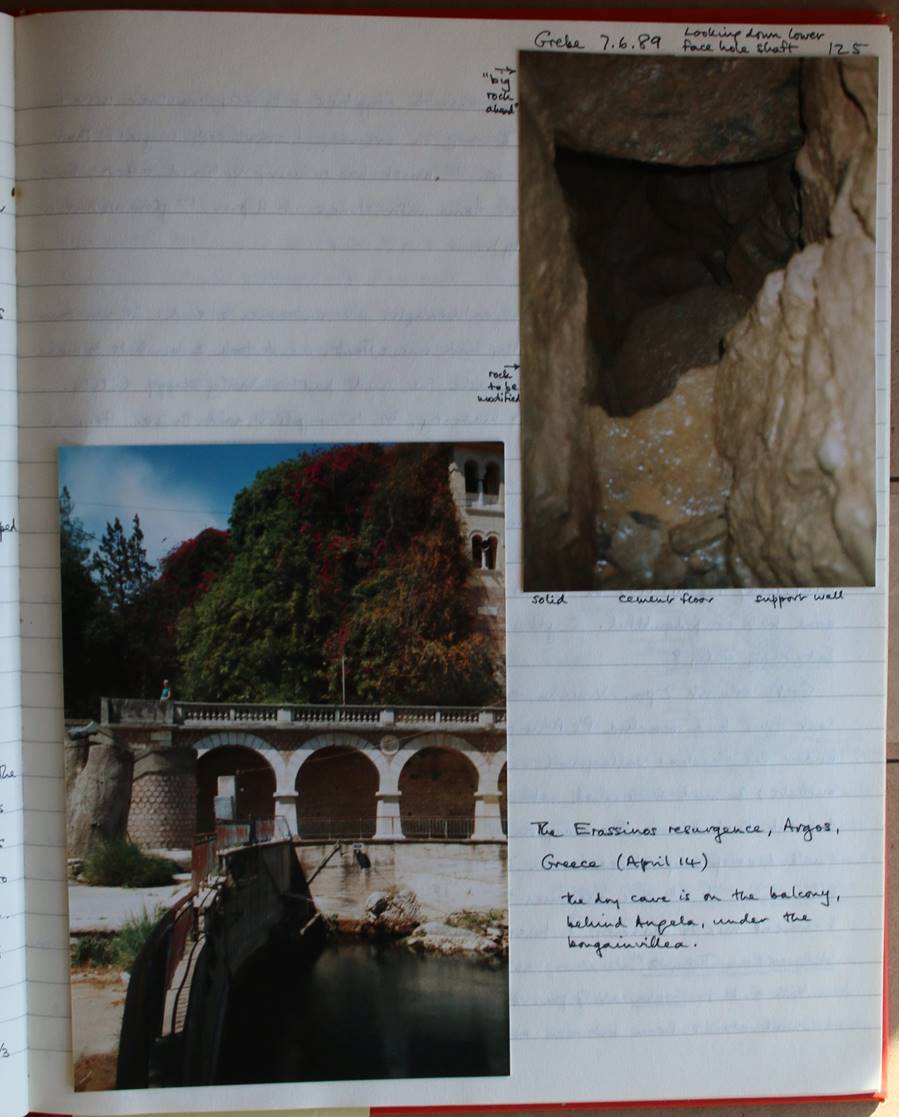 Grebe 7.6.89 Looking down lower
face hole shaft 125
"big
rock
ahead"
rock
to be
modified
solid cement floor support wall
The Erassinos resurgence, Argos,
Greece (April 14)
the dry cave is on the balcony,
behind Angela, under the
bougainvillea.